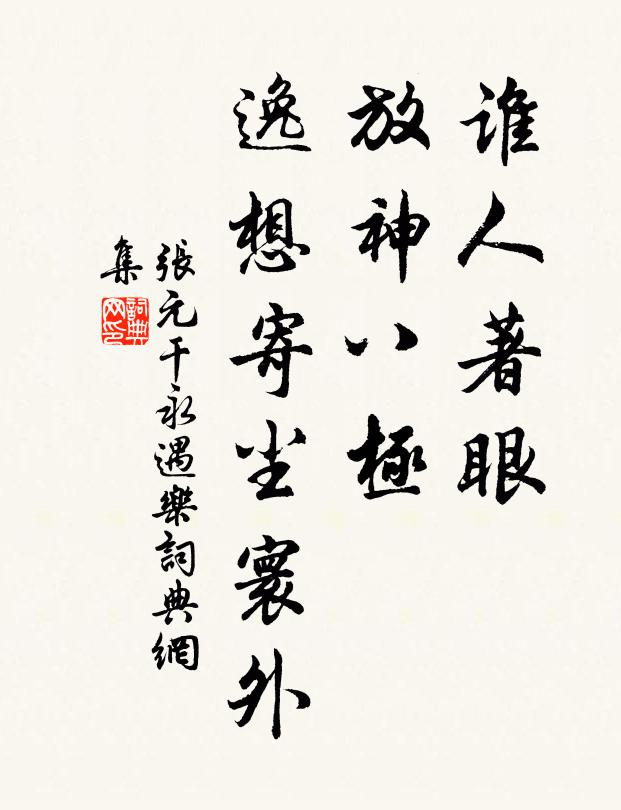 誰人著眼
放神八極
逸想寄尘寰外
張元干永遇樂詞典網
集
詞典
网印